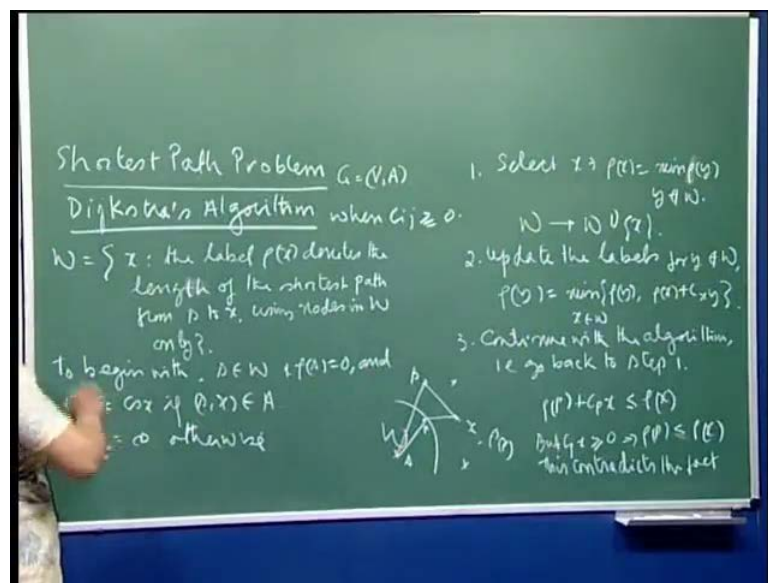 Shortest Path Problem G=(V,A)
Dijkstra's Algorithm when Cij ≥ 0.
W = { x : the label ρ(x) denotes the
length of the shortest path
from s to x, using nodes in W
only}.
To begin with, s ∈ W, ρ(s)=0, and
= Csx if (s,x) ∈ A
= ∞ otherwise
1. Select x ∋ ρ(x) = min ρ(y)
y ∉ W.
W → W ∪ {x}.
2. Update the labels for y ∉ W,
ρ(y) = min{ρ(y), ρ(x)+Cxy}.
x∈W
3. Continue with the algorithm,
i.e go back to step 1.
ρ(p)+Cpx ≤ ρ(x)
But Cpx ≥ 0 ⇒ ρ(p) ≤ ρ(x)
this contradicts the fact
p
x
W
s